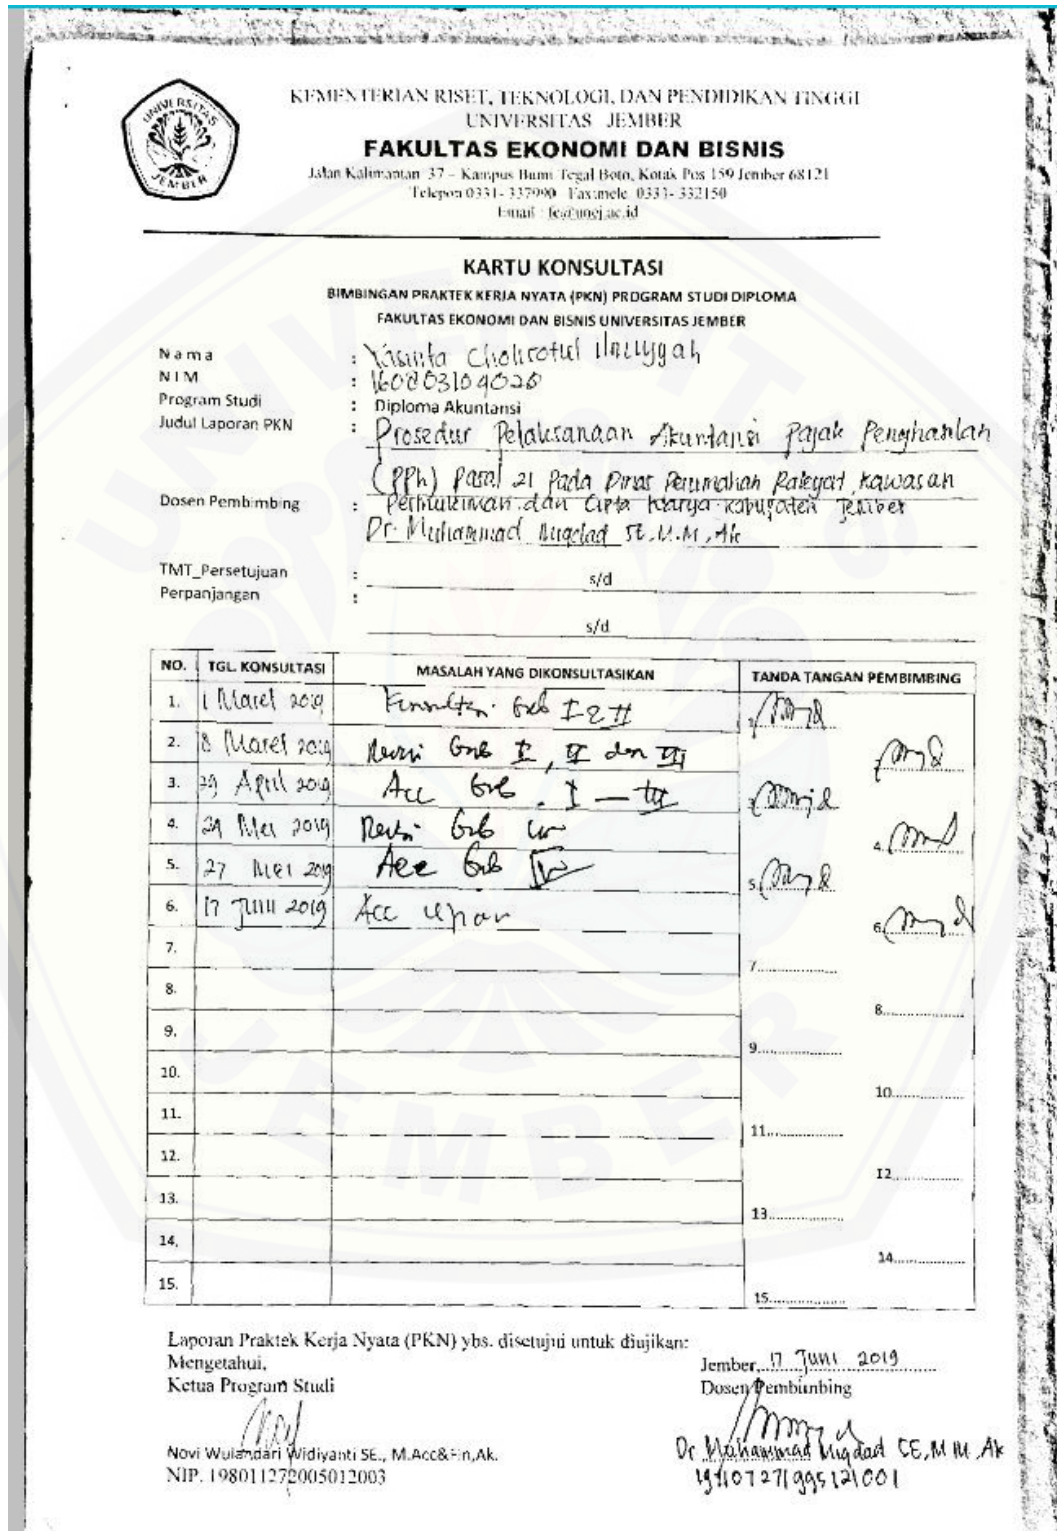 KEMENTERIAN RISET, TEKNOLOGI, DAN PENDIDIKAN TINGGI
UNIVERSITAS JEMBER
FAKULTAS EKONOMI DAN BISNIS
Jalan Kalimantan 37 – Kampus Bumi Tegal Boto, Kotak Pos 159 Jember 68121
Telepon 0331- 337990 Faximele 0331- 332150
Email : fe@unej.ac.id
UNIVERSITAS JEMBER
KARTU KONSULTASI
BIMBINGAN PRAKTEK KERJA NYATA (PKN) PROGRAM STUDI DIPLOMA
FAKULTAS EKONOMI DAN BISNIS UNIVERSITAS JEMBER
Nama :
NIM : 160803104020
Program Studi : Diploma Akuntansi
Judul Laporan PKN : Prosedur Pelaksanaan Akuntansi Pajak Penghasilan
(PPh) Pasal 21 Pada Dinas Perumahan Rakyat, Kawasan
Permukiman dan Cipta Karya Kabupaten Jember
Dosen Pembimbing : Dr. Muhammad Miqdad SE, M.M, Ak
TMT_Persetujuan : s/d
Perpanjangan :
s/d
NO. TGL. KONSULTASI MASALAH YANG DIKONSULTASIKAN TANDA TANGAN PEMBIMBING
1. 1 Maret 2019 Konsultasi Bab I & II 1.
2. 8 Maret 2019 Revisi Bab I, II dan III
3. 29 April 2019 Acc Bab . I — III 3.
4. Mei 2019 Revisi Bab IV 4.
5. 27 Mei 2019 Acc Bab IV 5.
6. 17 Juni 2019 Acc 6.
7. 7.
8. 8.
9. 9.
10. 10.
11. 11.
12. 12.
13. 13.
14. 14.
15. 15.
Laporan Praktek Kerja Nyata (PKN) ybs. disetujui untuk diujikan:
Mengetahui,
Ketua Program Studi
Novi Wulandari Widiyanti SE., M.Acc&Fin,Ak.
NIP. 198011272005012003
Jember, 17 Juni 2019
Dosen Pembimbing
Dr. Muhammad Miqdad SE, M.M, Ak
197107271995121001